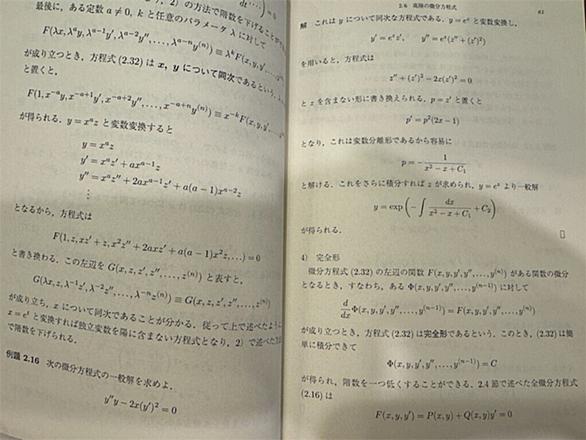 ，2）の方法で階数を下げること
最後に，ある定数 a ≠ 0, k と任意のパラメータ λ に対して
F(λx, λ^a y, λ^{a-1}y', λ^{a-2}y'', ..., λ^{a-n}y^{(n)}) ≡ λ^k F(x, y, y',
が成り立つとき，方程式 (2.32) は x, y について同次であるという．
と置くと，
F(1, x^{-a}y, x^{-a+1}y', x^{-a+2}y'', ..., x^{-a+n}y^{(n)}) ≡ x^{-k}F(x, y, y',
が得られる．y = x^a z と変数変換すると
y = x^a z
y' = x^a z' + ax^{a-1}z
y'' = x^a z'' + 2ax^{a-1}z' + a(a-1)x^{a-2}z
⋮
となるから，方程式は
F(1, z, xz' + z, x^2z'' + 2axz' + a(a-1)x^2z, ...) = 0
と書き換わる．この左辺を G(x, z, z', z'', ..., z^{(n)}) と表すと，
G(λx, z, λ^{-1}z', λ^{-2}z'', ..., λ^{-n}z^{(n)}) ≡ G(x, z, z', z'', ..., z^{(n)})
が成り立ち，x について同次であることが分かる．従って上で述べたように
x = e^t と変換すれば独立変数を陽に含まない方程式となり，2）で述べた方法
で階数を下げられる．
例題 2.16 次の微分方程式の一般解を求めよ．
y''y - 2x(y')^2 = 0
2.6 高階の微分方程式 61
解 これは y について同次な方程式である．y = e^z と変数変換し，
y' = e^z z', y'' = e^z(z'' + (z')^2)
を用いると，方程式は
z'' + (z')^2 - 2x(z')^2 = 0
と z を含まない形に書き換えられる．p = z' と置くと
p' = p^2(2x - 1)
となり，これは変数分離形であるから容易に
p = - 1/(x^2 - x + C_1)
と解ける．これをさらに積分すれば z が求められ，y = e^z より一般解
y = exp(-∫ dx/(x^2 - x + C_1) + C_2)
が得られる． □
4） 完全形
微分方程式 (2.32) の左辺の関数 F(x, y, y', y'', ..., y^{(n)}) がある関数の微分
となるとき，すなわち，ある Φ(x, y, y', y'', ..., y^{(n-1)}) に対して
d/dx Φ(x, y, y', y'', ..., y^{(n-1)}) = F(x, y, y', y'', ..., y^{(n)})
が成り立つとき，方程式 (2.32) は完全形であるという．このとき，(2.32) は簡
単に積分できて
Φ(x, y, y', y'', ..., y^{(n-1)}) = C
が得られ，階数を一つ低くすることができる．2.4 節で述べた全微分方程式
(2.16) は
F(x, y, y') = P(x, y) + Q(x, y)y' = 0